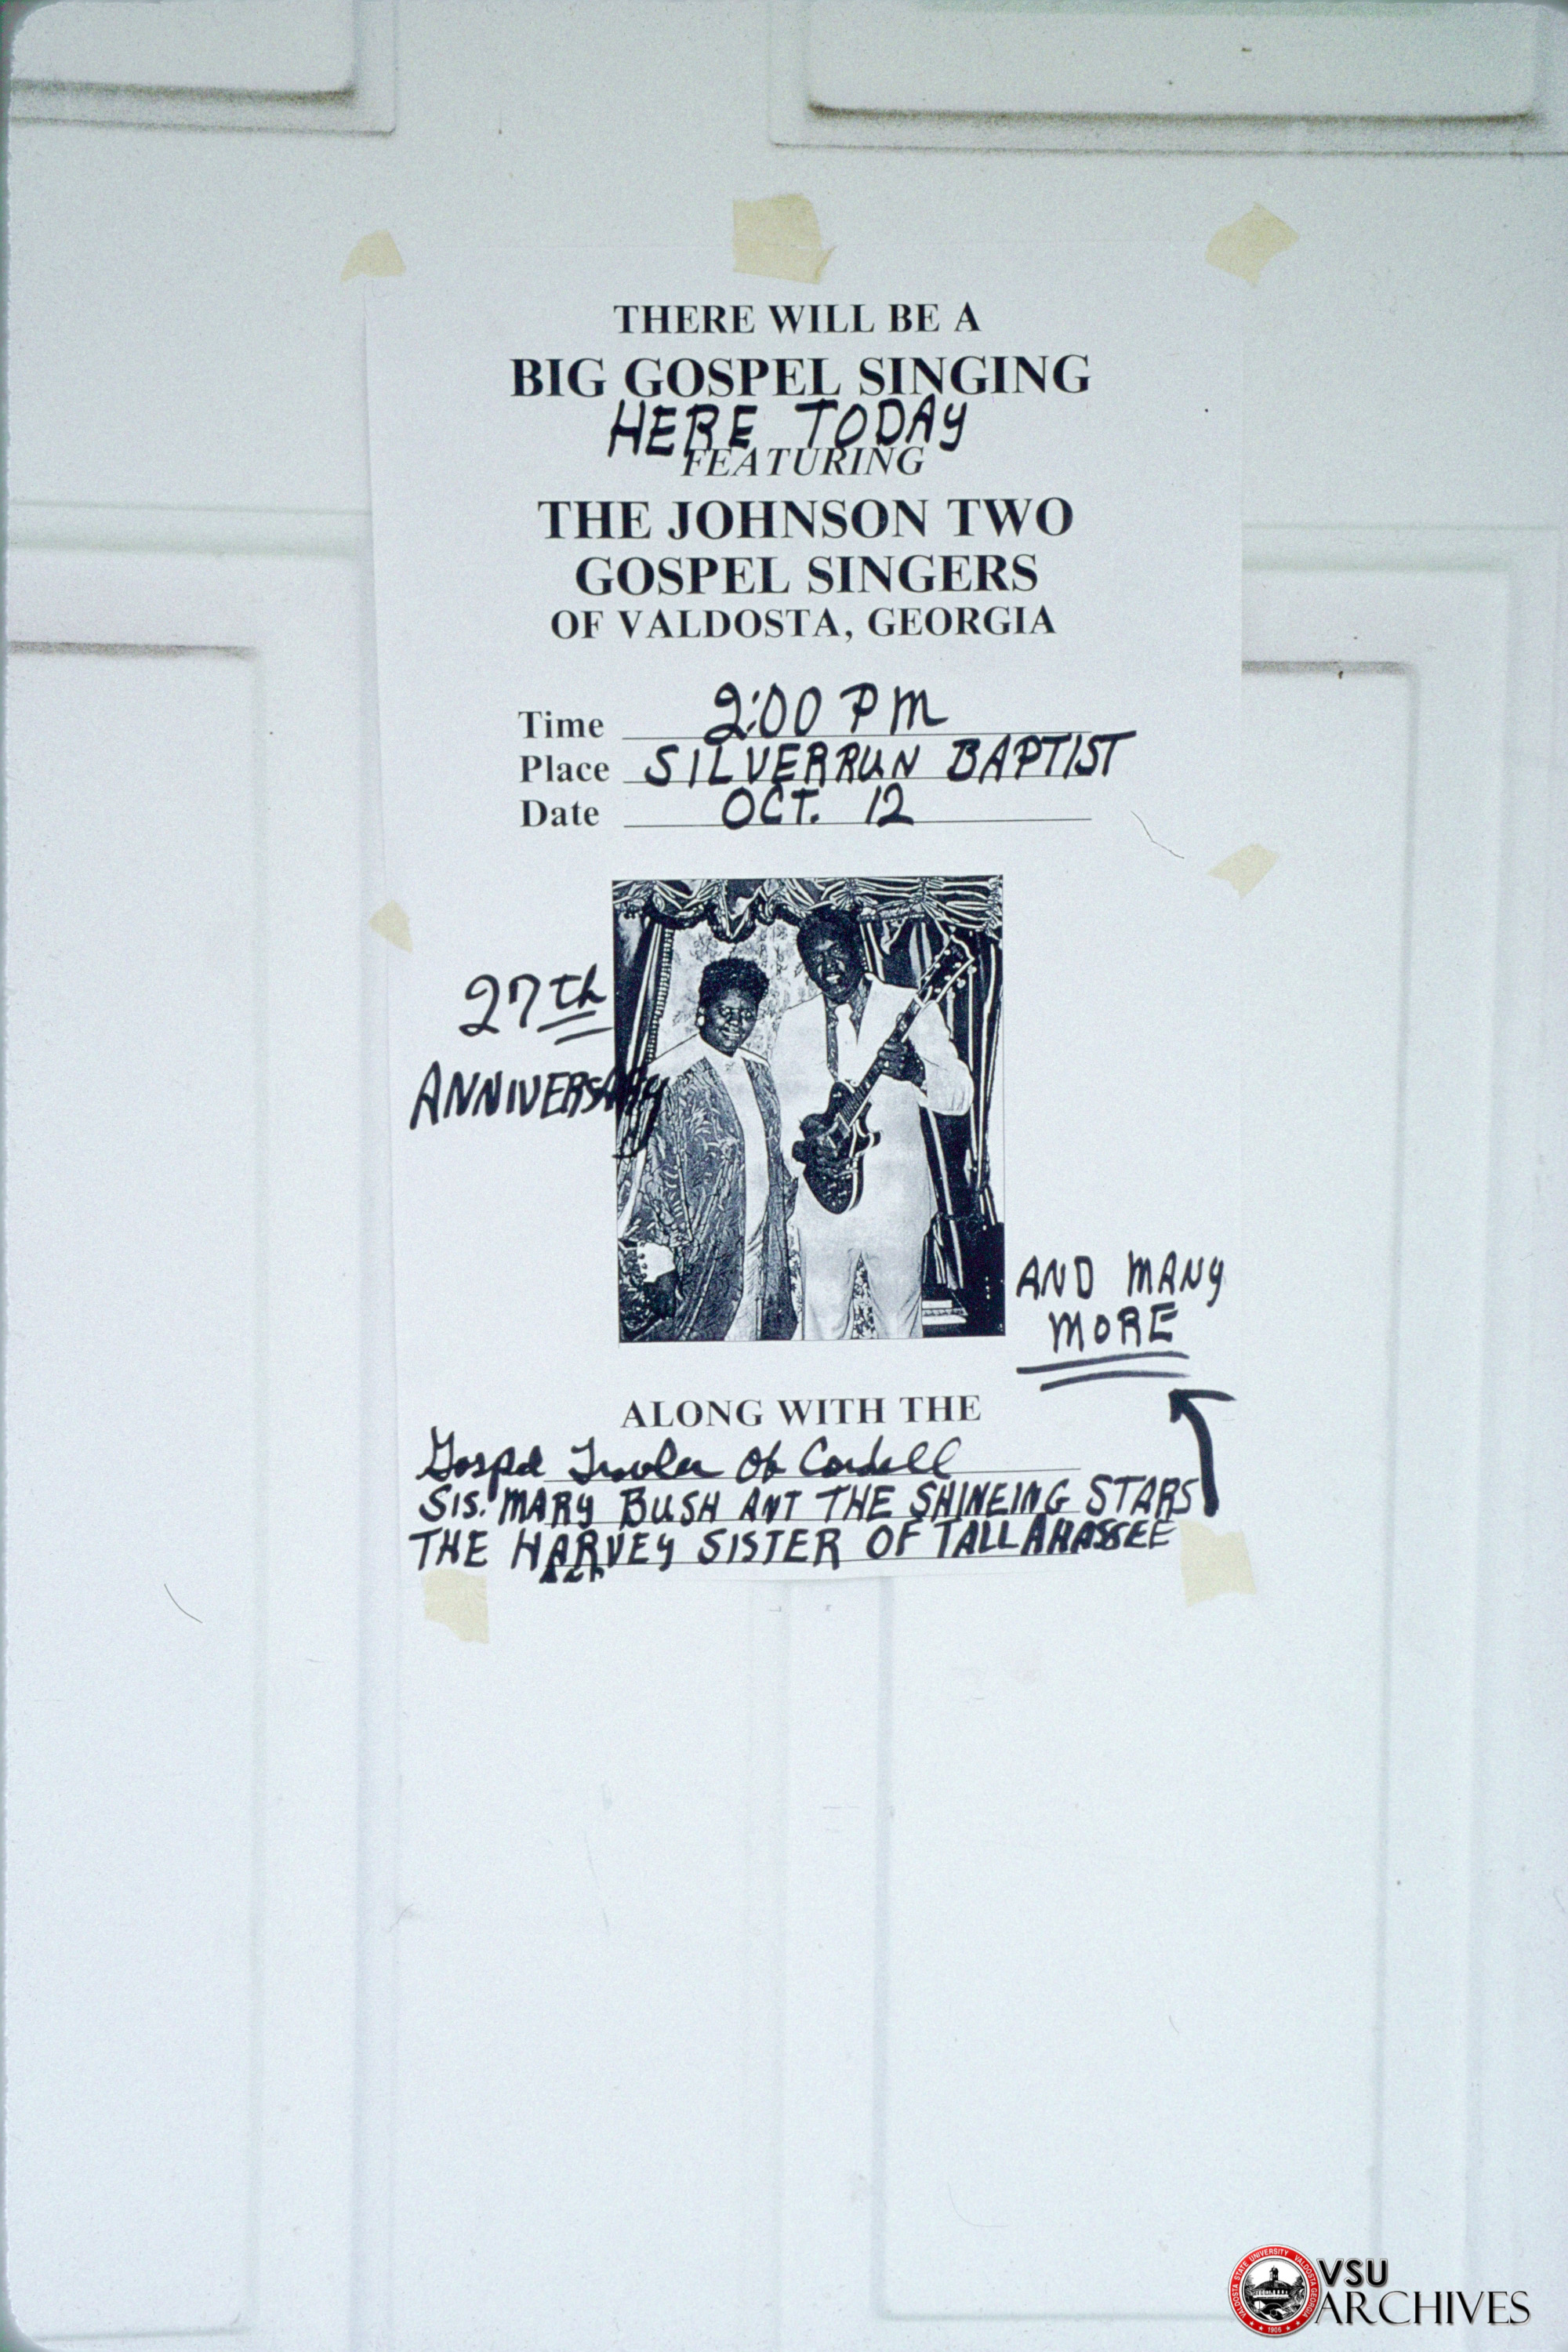 THERE WILL BE A
BIG GOSPEL SINGING
HERE TODAY
FEATURING
THE JOHNSON TWO
GOSPEL SINGERS
OF VALDOSTA, GEORGIA
Time 2:00 PM
Place SILVERRUN BAPTIST
Date OCT. 12
27th
ANNIVERSARY
AND MANY
MORE
ALONG WITH THE
Gospel Of Cordell
SIS. MARY BUSH ANT THE SHINEING STARS
THE HARVEY SISTER OF TALLAHASSEE
VSU
ARCHIVES
VALDOSTA STATE UNIVERSITY VALDOSTA GEORGIA
1906